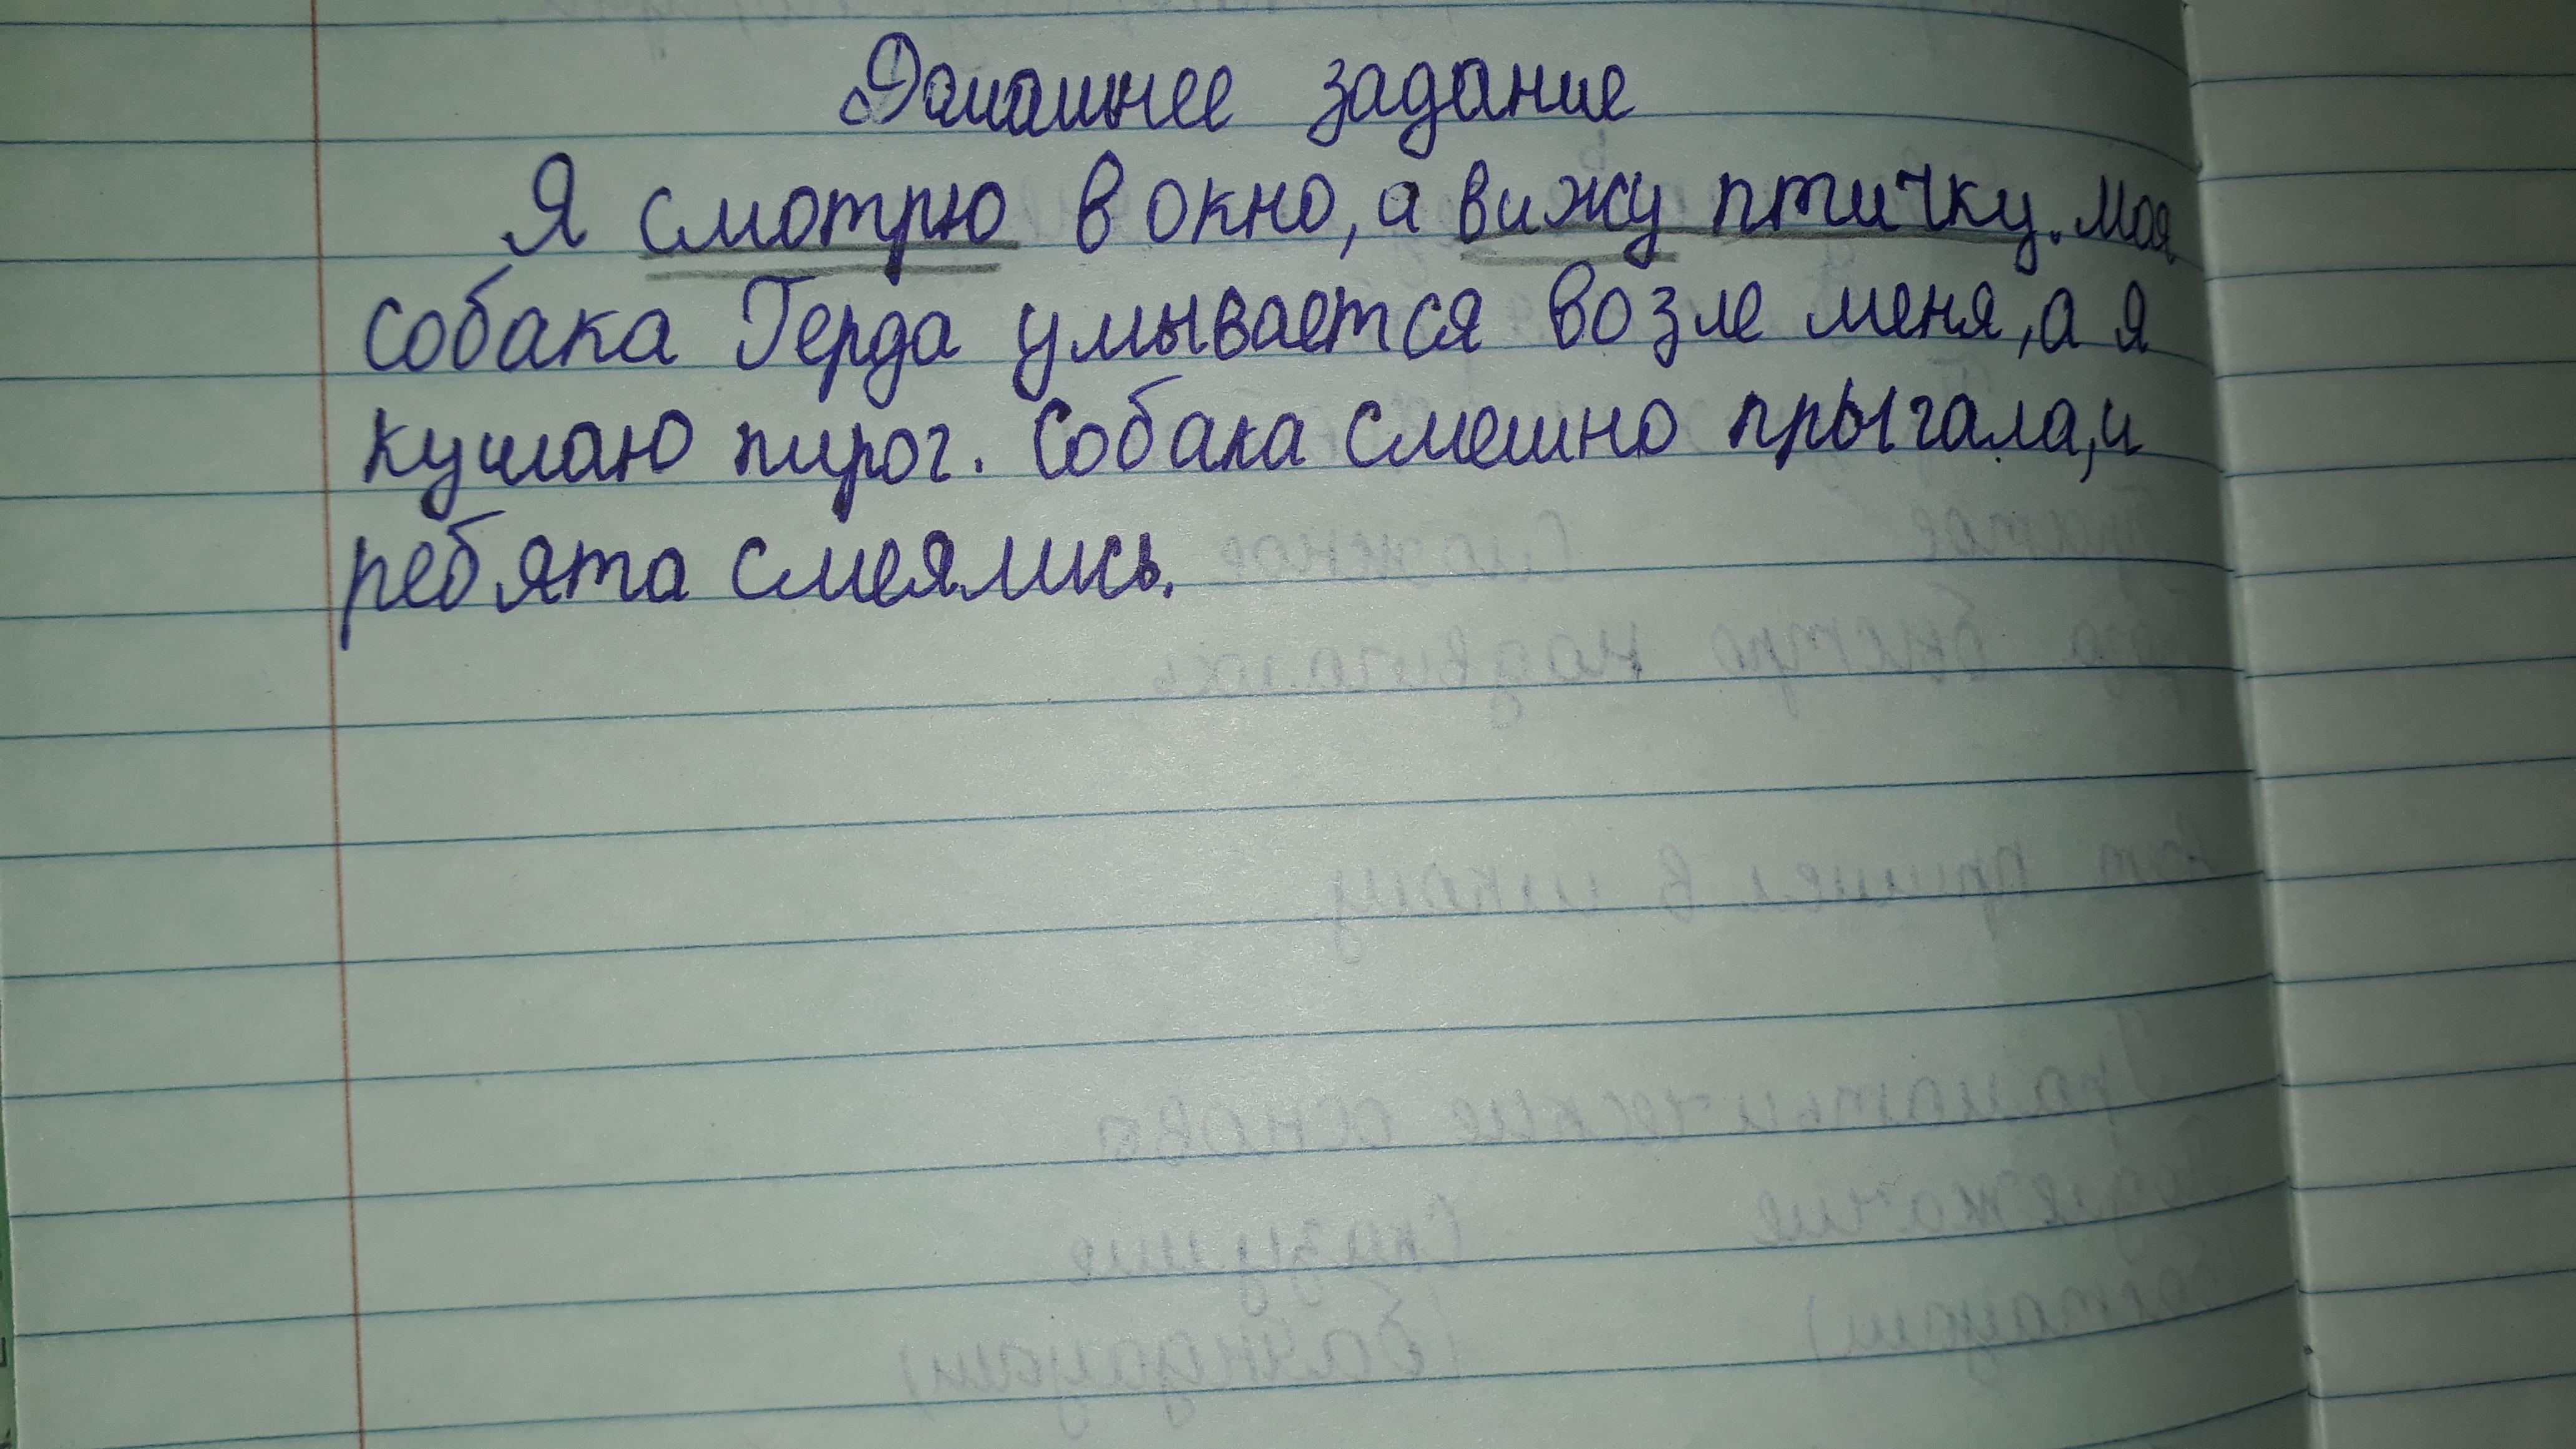 Домашнее задание
Я смотрю в окно, а вижу птичку. Моя
собака Герда умывается возле меня, а я
кушаю пирог. Собака смешно прыгала, и
ребята смеялись.